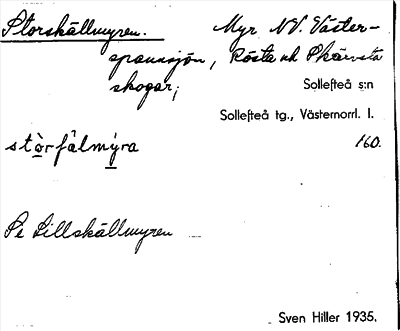 Storskällmyren. Myr NV. Väster-
spannsjön, Rösta o. Skärvsta
skogar;
Sollefteå s:n
Sollefteå tg., Västernorrl. l.
stòrfälmýra 160.
Se Lillskällmyren
Sven Hiller 1935.